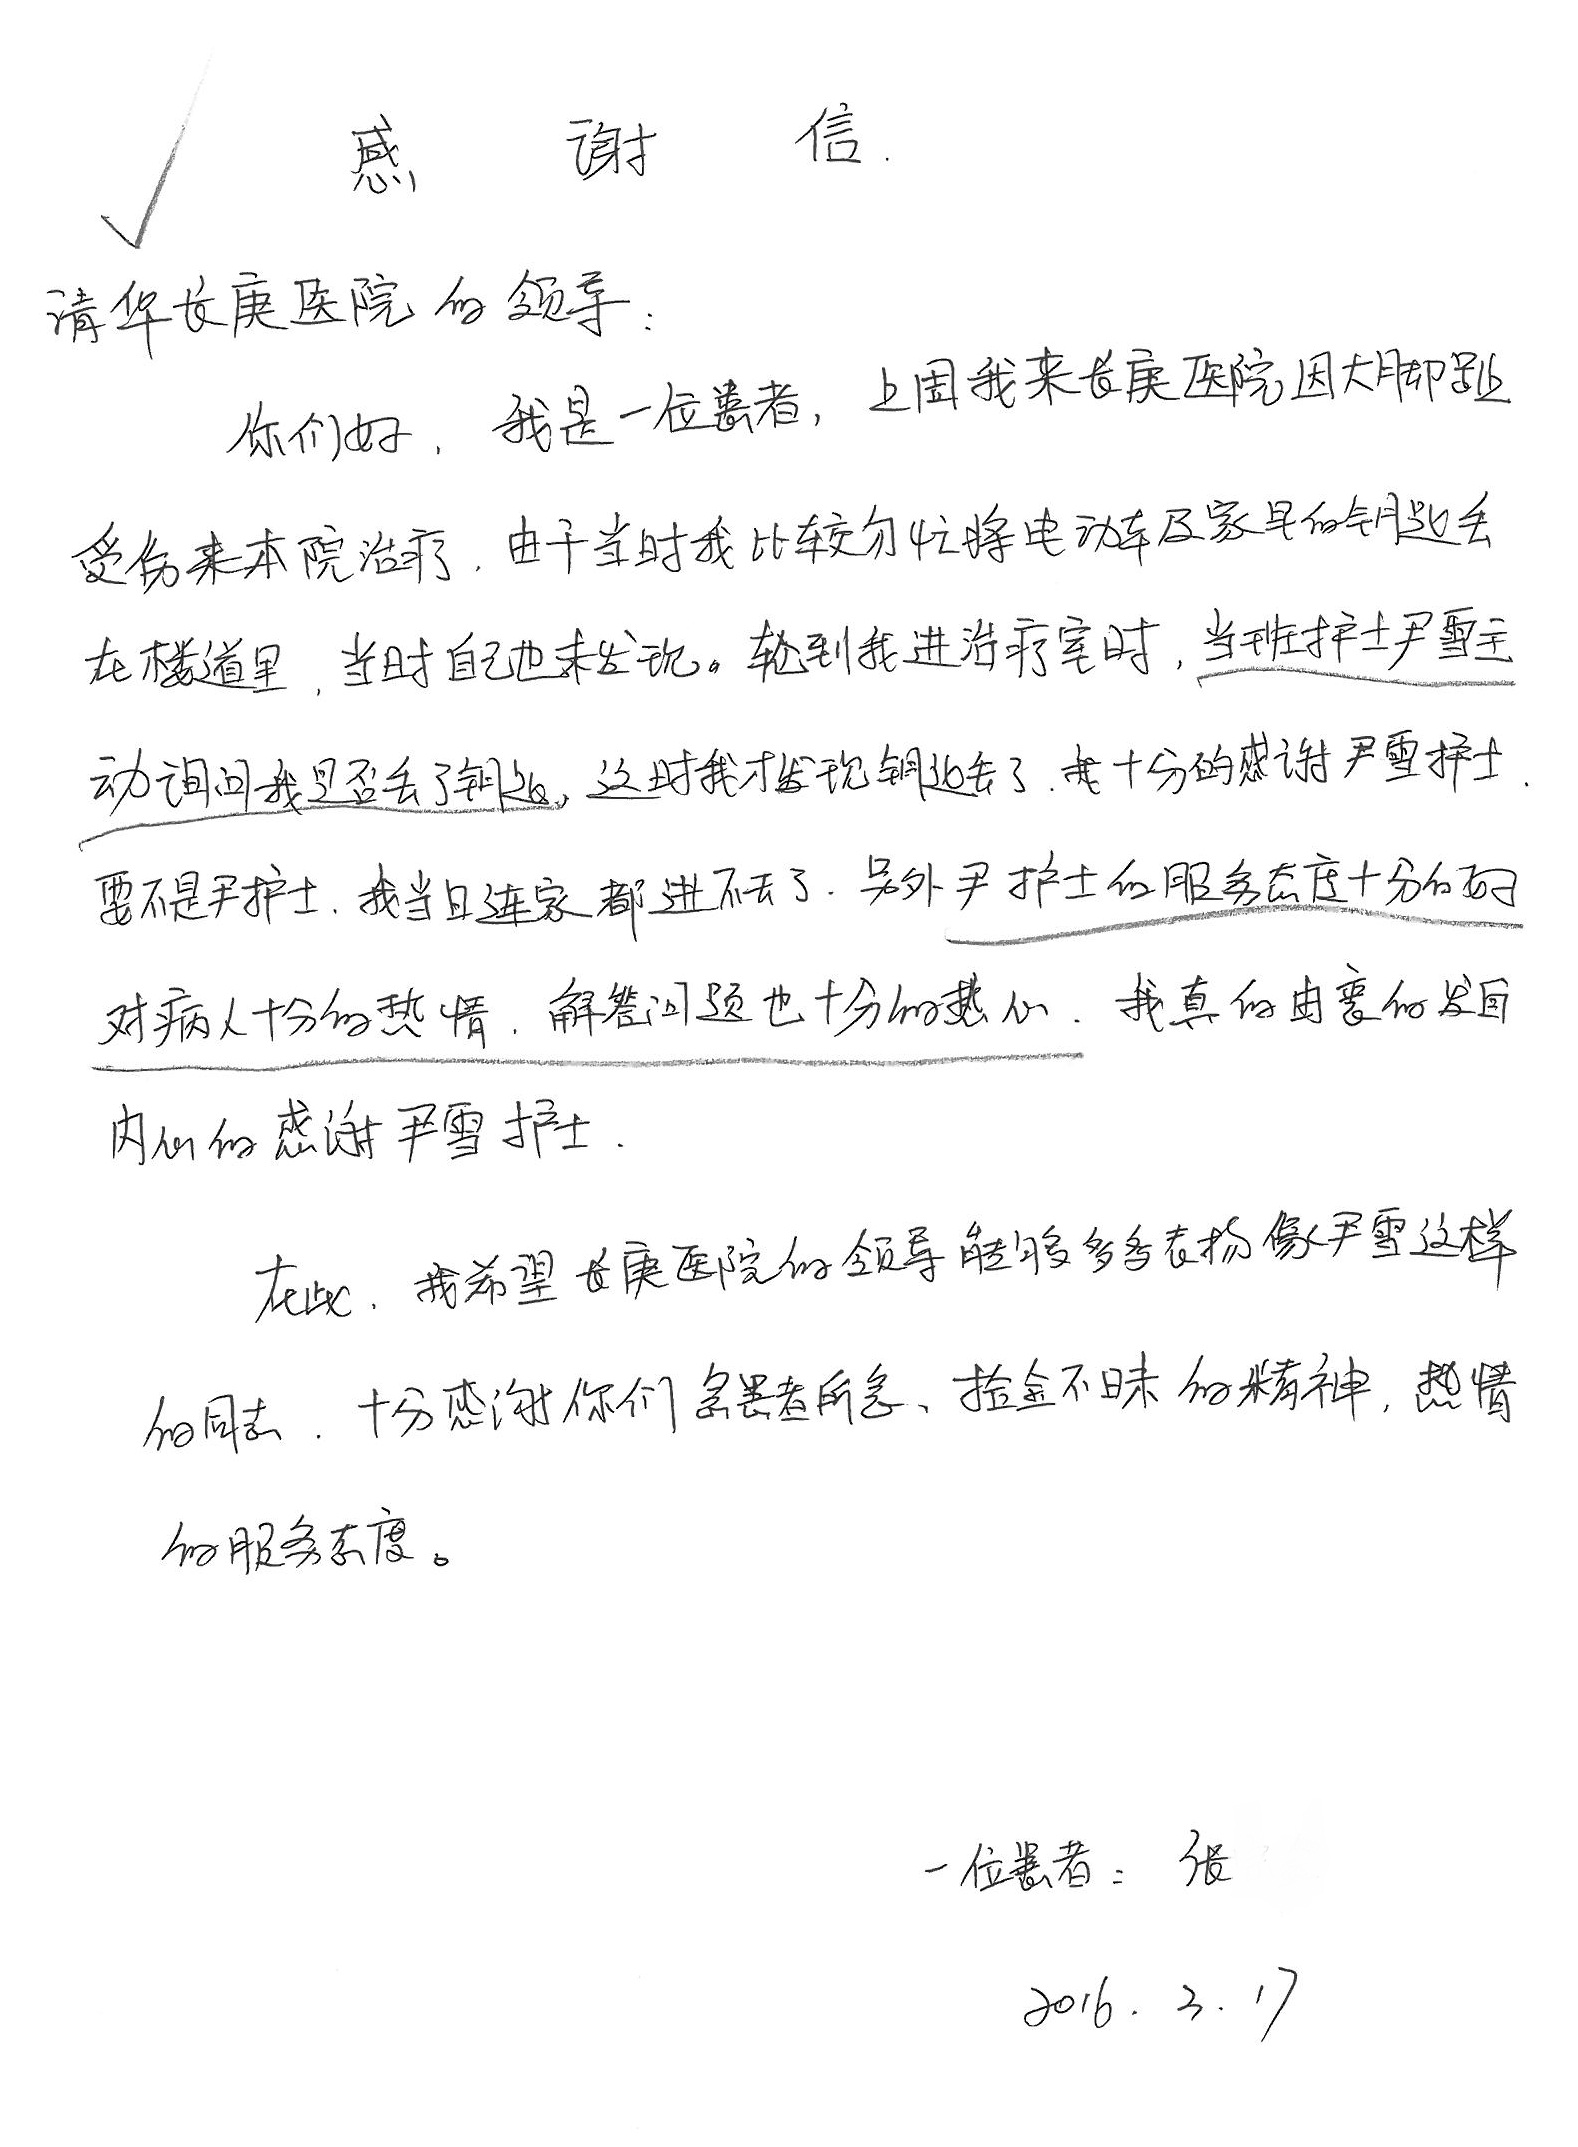 感谢信.
清华长庚医院的领导:
你们好. 我是一位患者, 上周我来长庚医院因大脚趾
受伤来本院治疗. 由于当时我比较匆忙将电动车及家里的钥匙丢
在楼道里, 当时自己也未发现。轮到我进治疗室时, 当班护士尹雪主
动询问我是否丢了钥匙, 这时我才发现钥匙丢了. 我十分的感谢尹雪护士.
要不是尹护士. 我当日连家都进不去了. 另外尹护士的服务态度十分的好
对病人十分的热情. 解答问题也十分的热心. 我真的由衷的发自
内心的感谢尹雪护士.
在此. 我希望长庚医院的领导能够多多表扬像尹雪这样
的同志. 十分感谢你们急患者所急、拾金不昧的精神, 热情
的服务态度。
一位患者: 张
2016. 3. 17